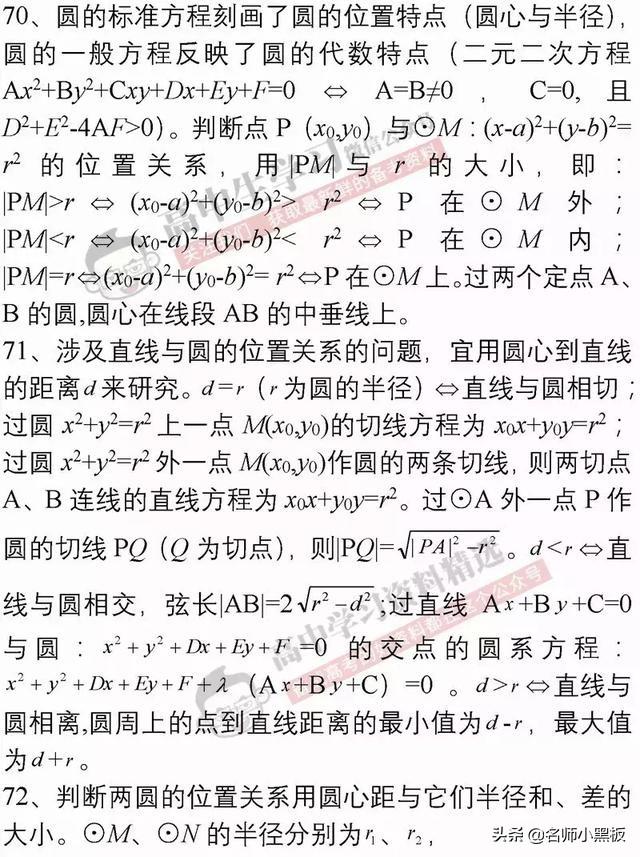 70、圆的标准方程刻画了圆的位置特点（圆心与半径），
圆的一般方程反映了圆的代数特点（二元二次方程
Ax²+By²+Cxy+Dx+Ey+F=0 ⇔ A=B≠0 ， C=0, 且
D²+E²-4AF>0）。判断点 P（x₀,y₀）与⊙M：(x-a)²+(y-b)²=
r² 的位置关系，用 |PM| 与 r 的大小，即：
|PM|>r ⇔ (x₀-a)²+(y₀-b)²> r² ⇔ P 在 ⊙ M 外；
|PM|<r ⇔ (x₀-a)²+(y₀-b)²< r² ⇔ P 在 ⊙ M 内；
|PM|=r⇔(x₀-a)²+(y₀-b)²= r²⇔P 在⊙M 上。过两个定点 A、
B 的圆,圆心在线段 AB 的中垂线上。
71、涉及直线与圆的位置关系的问题，宜用圆心到直线
的距离 d 来研究。d=r（r 为圆的半径）⇔直线与圆相切；
过圆 x²+y²=r² 上一点 M(x₀,y₀)的切线方程为 x₀x+y₀y=r²；
过圆 x²+y²=r² 外一点 M(x₀,y₀)作圆的两条切线，则两切点
A、B 连线的直线方程为 x₀x+y₀y=r²。过⊙A 外一点 P 作
圆的切线 PQ（Q 为切点），则|PQ|=√(|PA|²-r²)。d<r⇔直
线与圆相交，弦长|AB|=2√(r²-d²);过直线 Ax+By+C=0
与圆：x²+y²+Dx+Ey+F=0 的交点的圆系方程：
x²+y²+Dx+Ey+F+λ（Ax+By+C）=0 。d>r⇔直线与
圆相离,圆周上的点到直线距离的最小值为 d-r，最大值
为 d+r。
72、判断两圆的位置关系用圆心距与它们半径和、差的
大小。⊙M、⊙N 的半径分别为 r₁、r₂，
头条 @名师小黑板